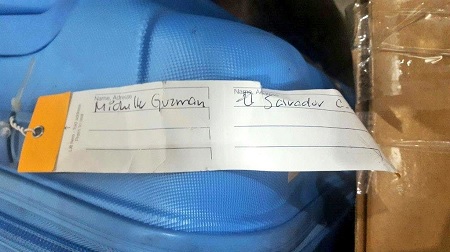 Name, Adresse
Michelle Guzman
Name, A
El Salvador C.